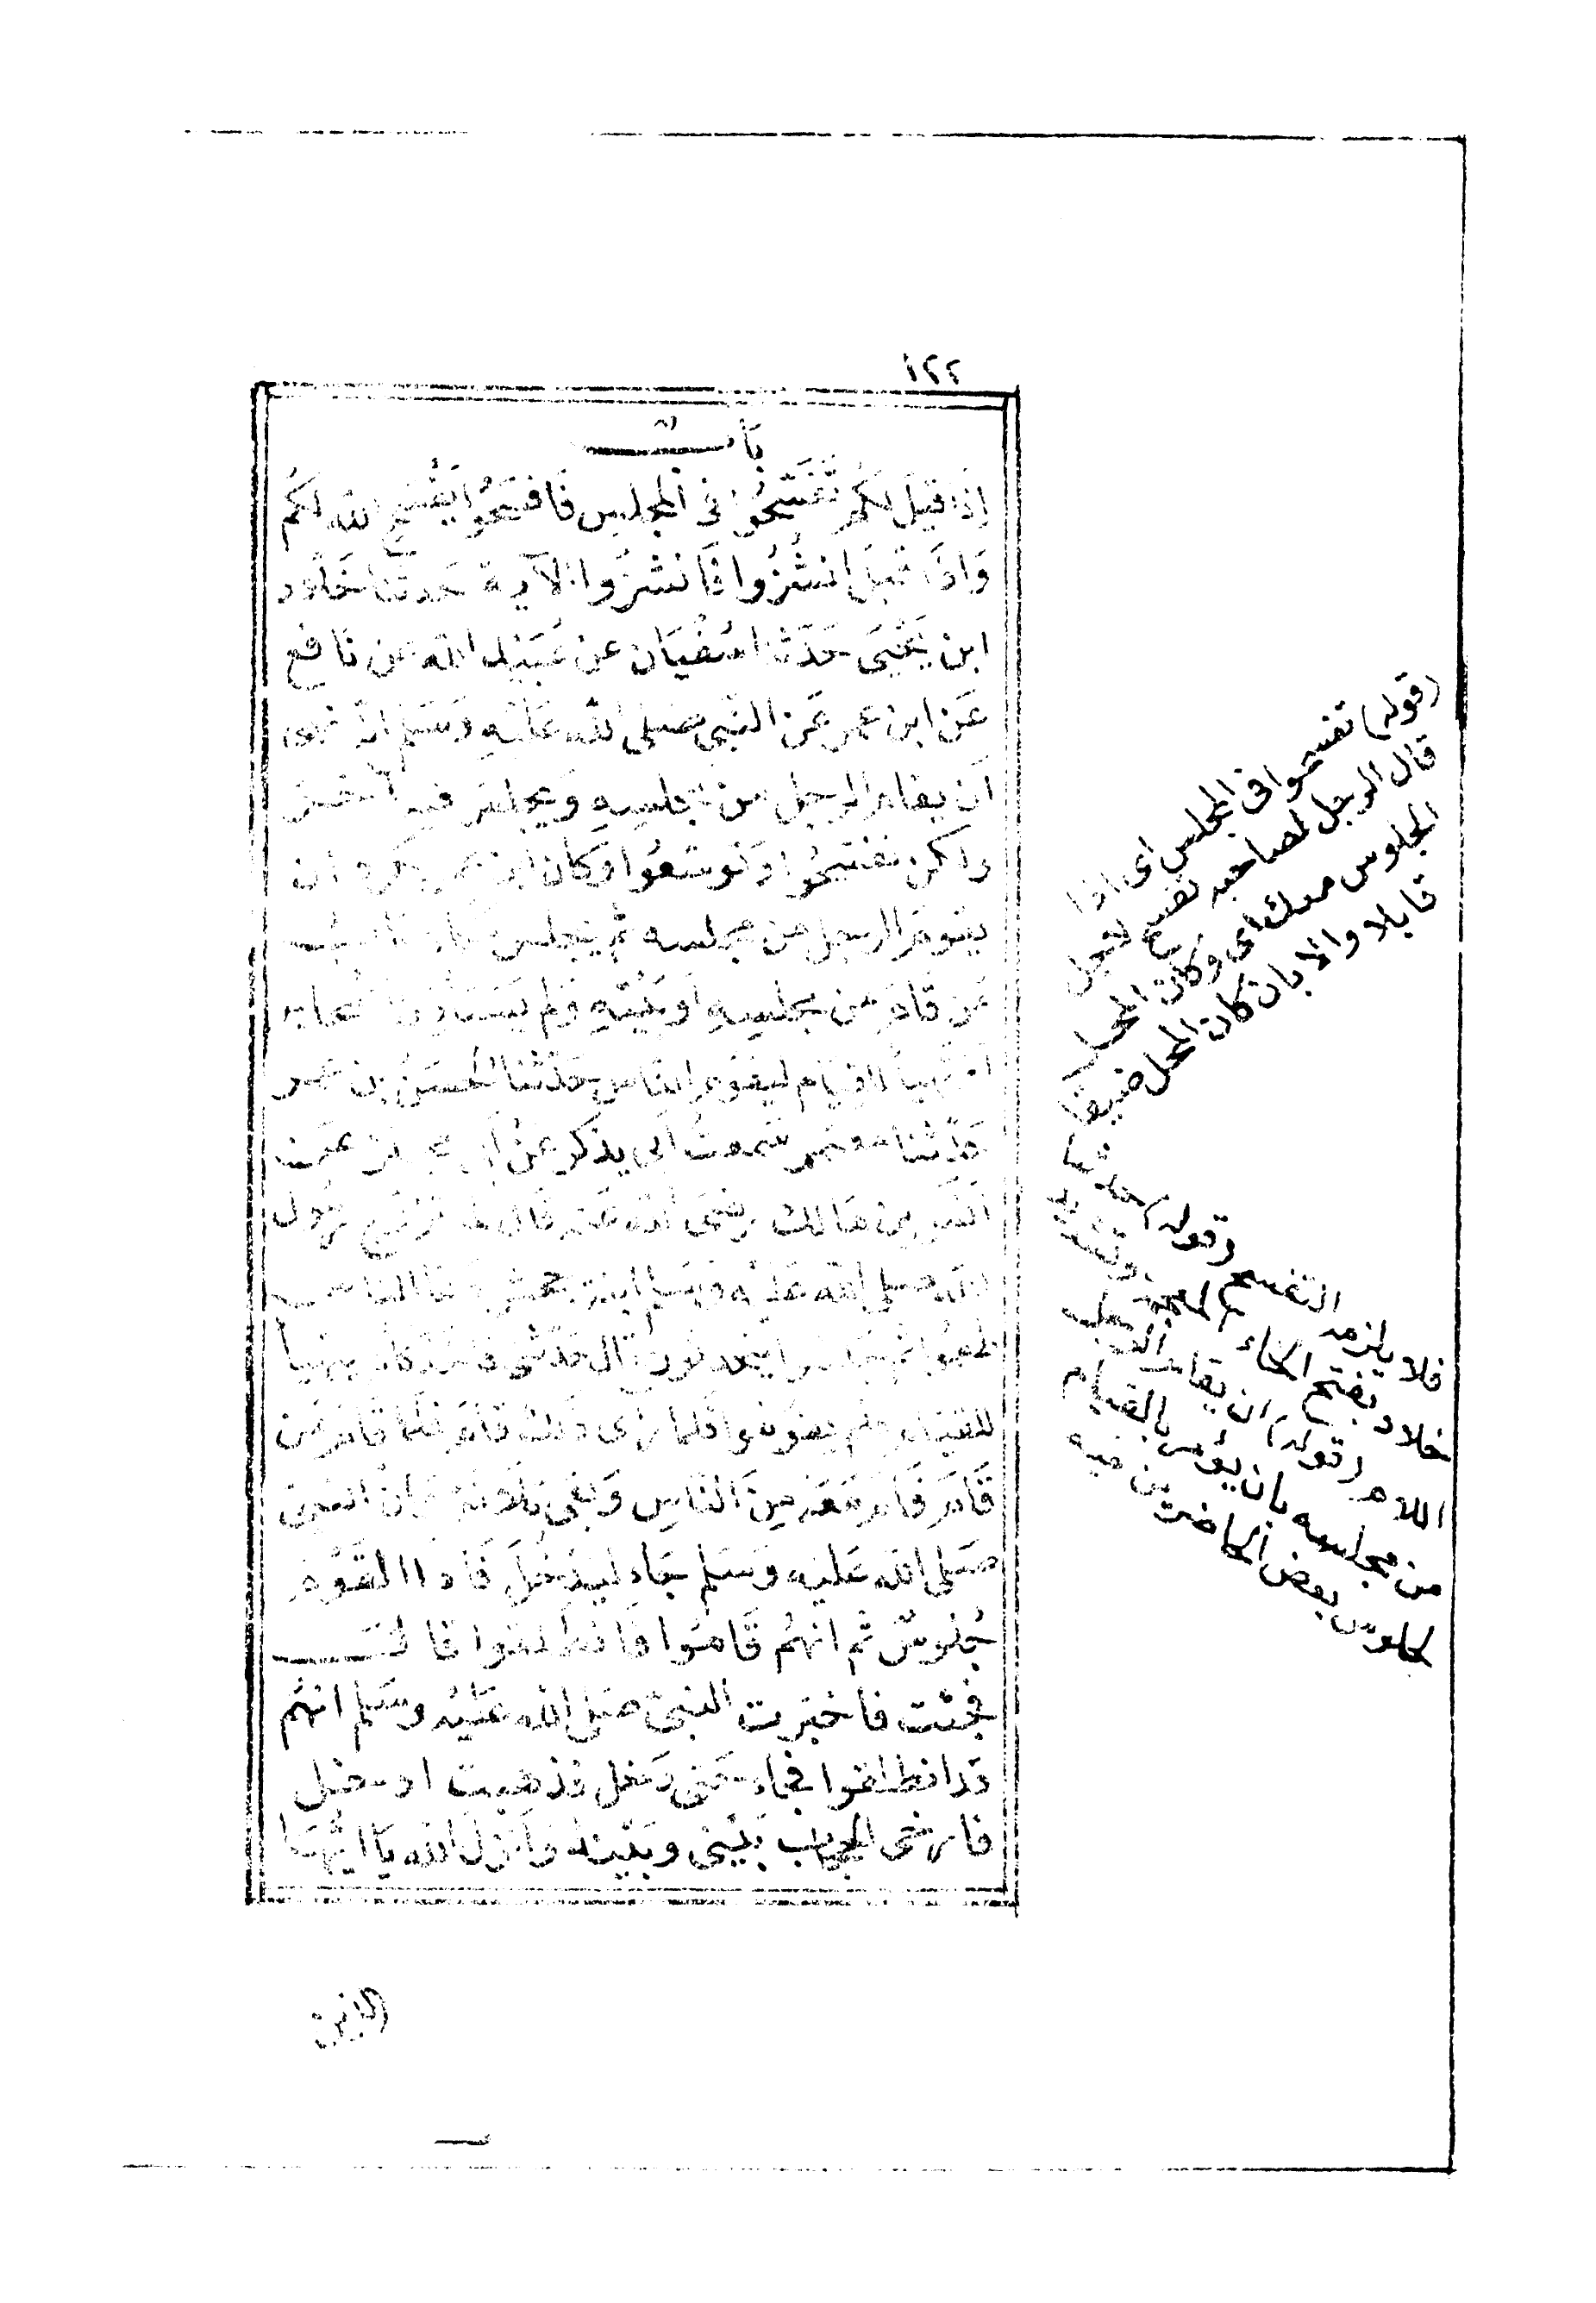 ١٢٤
باب
إِذَا قِيلَ لَكُمْ تَفَسَّحُوا فى المجلس فَافسَحُوا يَفْسَحِ الله لَكُم
وَإذَا قيلَ انشُزُوا فَانشزُوا الآية حَدثنا خَلاد
ابن يَحْيَى حَدّثنا سُفْيَان عن عُبَيْد الله عن نَافع
عَن ابن عمر عَن النَّبى صَلى الله عَلَيْه وَسَلم انه نهى
أن يقام الرجل من مجلسِهِ وَيجلسَ فيه آخَرُ
ولكن تفسَّحُوا وَتوسَّعُوا وَكان ابن عمر يكره ان
يقومَ الرجل من مجلسه ثم يجلس مكانه باب
مَن قَامَ من مجلسِهِ أو بَيْتِهِ وَلم يَسْتأذن أصحابه
أو تهيأ للقيام ليقومَ الناس حَدّثنا الحسَنُ بن عمر
حَدّثنا معتمر سَمعت أبى يذكر عَنْ أبى مجلز عَن
أنس بن مَالك رضىَ الله عَنه قال لما تزوج رسول
الله صلى الله عَلَيْه وَسَلم ابنة جحش دَعَا الناس
طعموا ثم جلسوا يتحدثونَ قال فأخذ كأنه يتهيأ
للقيام فلم يقومُوا فَلما رأى ذلك قَامَ فلمّا قَامَ مَن
قَامَ قَامَ مَعَه مِنَ النَّاسِ وَبقىَ ثلاثة وَانّ النبىّ
صَلى الله عَليه وَسَلم جَاء ليَدْخلَ فَاذا القَوْم
جُلوسٌ ثم انهُم قَامُوا فَانطلقوا قال
فجئت فاخبرت النبىّ صَلى الله عَلَيْه وسَلم انهُم
قد انطلقوا فجاء حَتى دَخل فذهبت ادخل
فارخى الحجاب بَيْنى وبَيْنه وَأنزَلَ الله يَا أيُّهَا
الذين
(قوله) تفسحوا فى المجلس اى اذا
قال الرجل لصاحبه تفسح لاجل
الجلوس معك اى وكان المحل
قابلا والا بان كان المحل ضيقا
فلا يلزمه التفسح (قوله) حدثنا
خلاد بفتح الخاء المعجمة وتشديد
اللام (قوله) ان يقام الرجل
من مجلسه بان يؤمر بالقيام
لجلوس بعض الحاضرين فيه